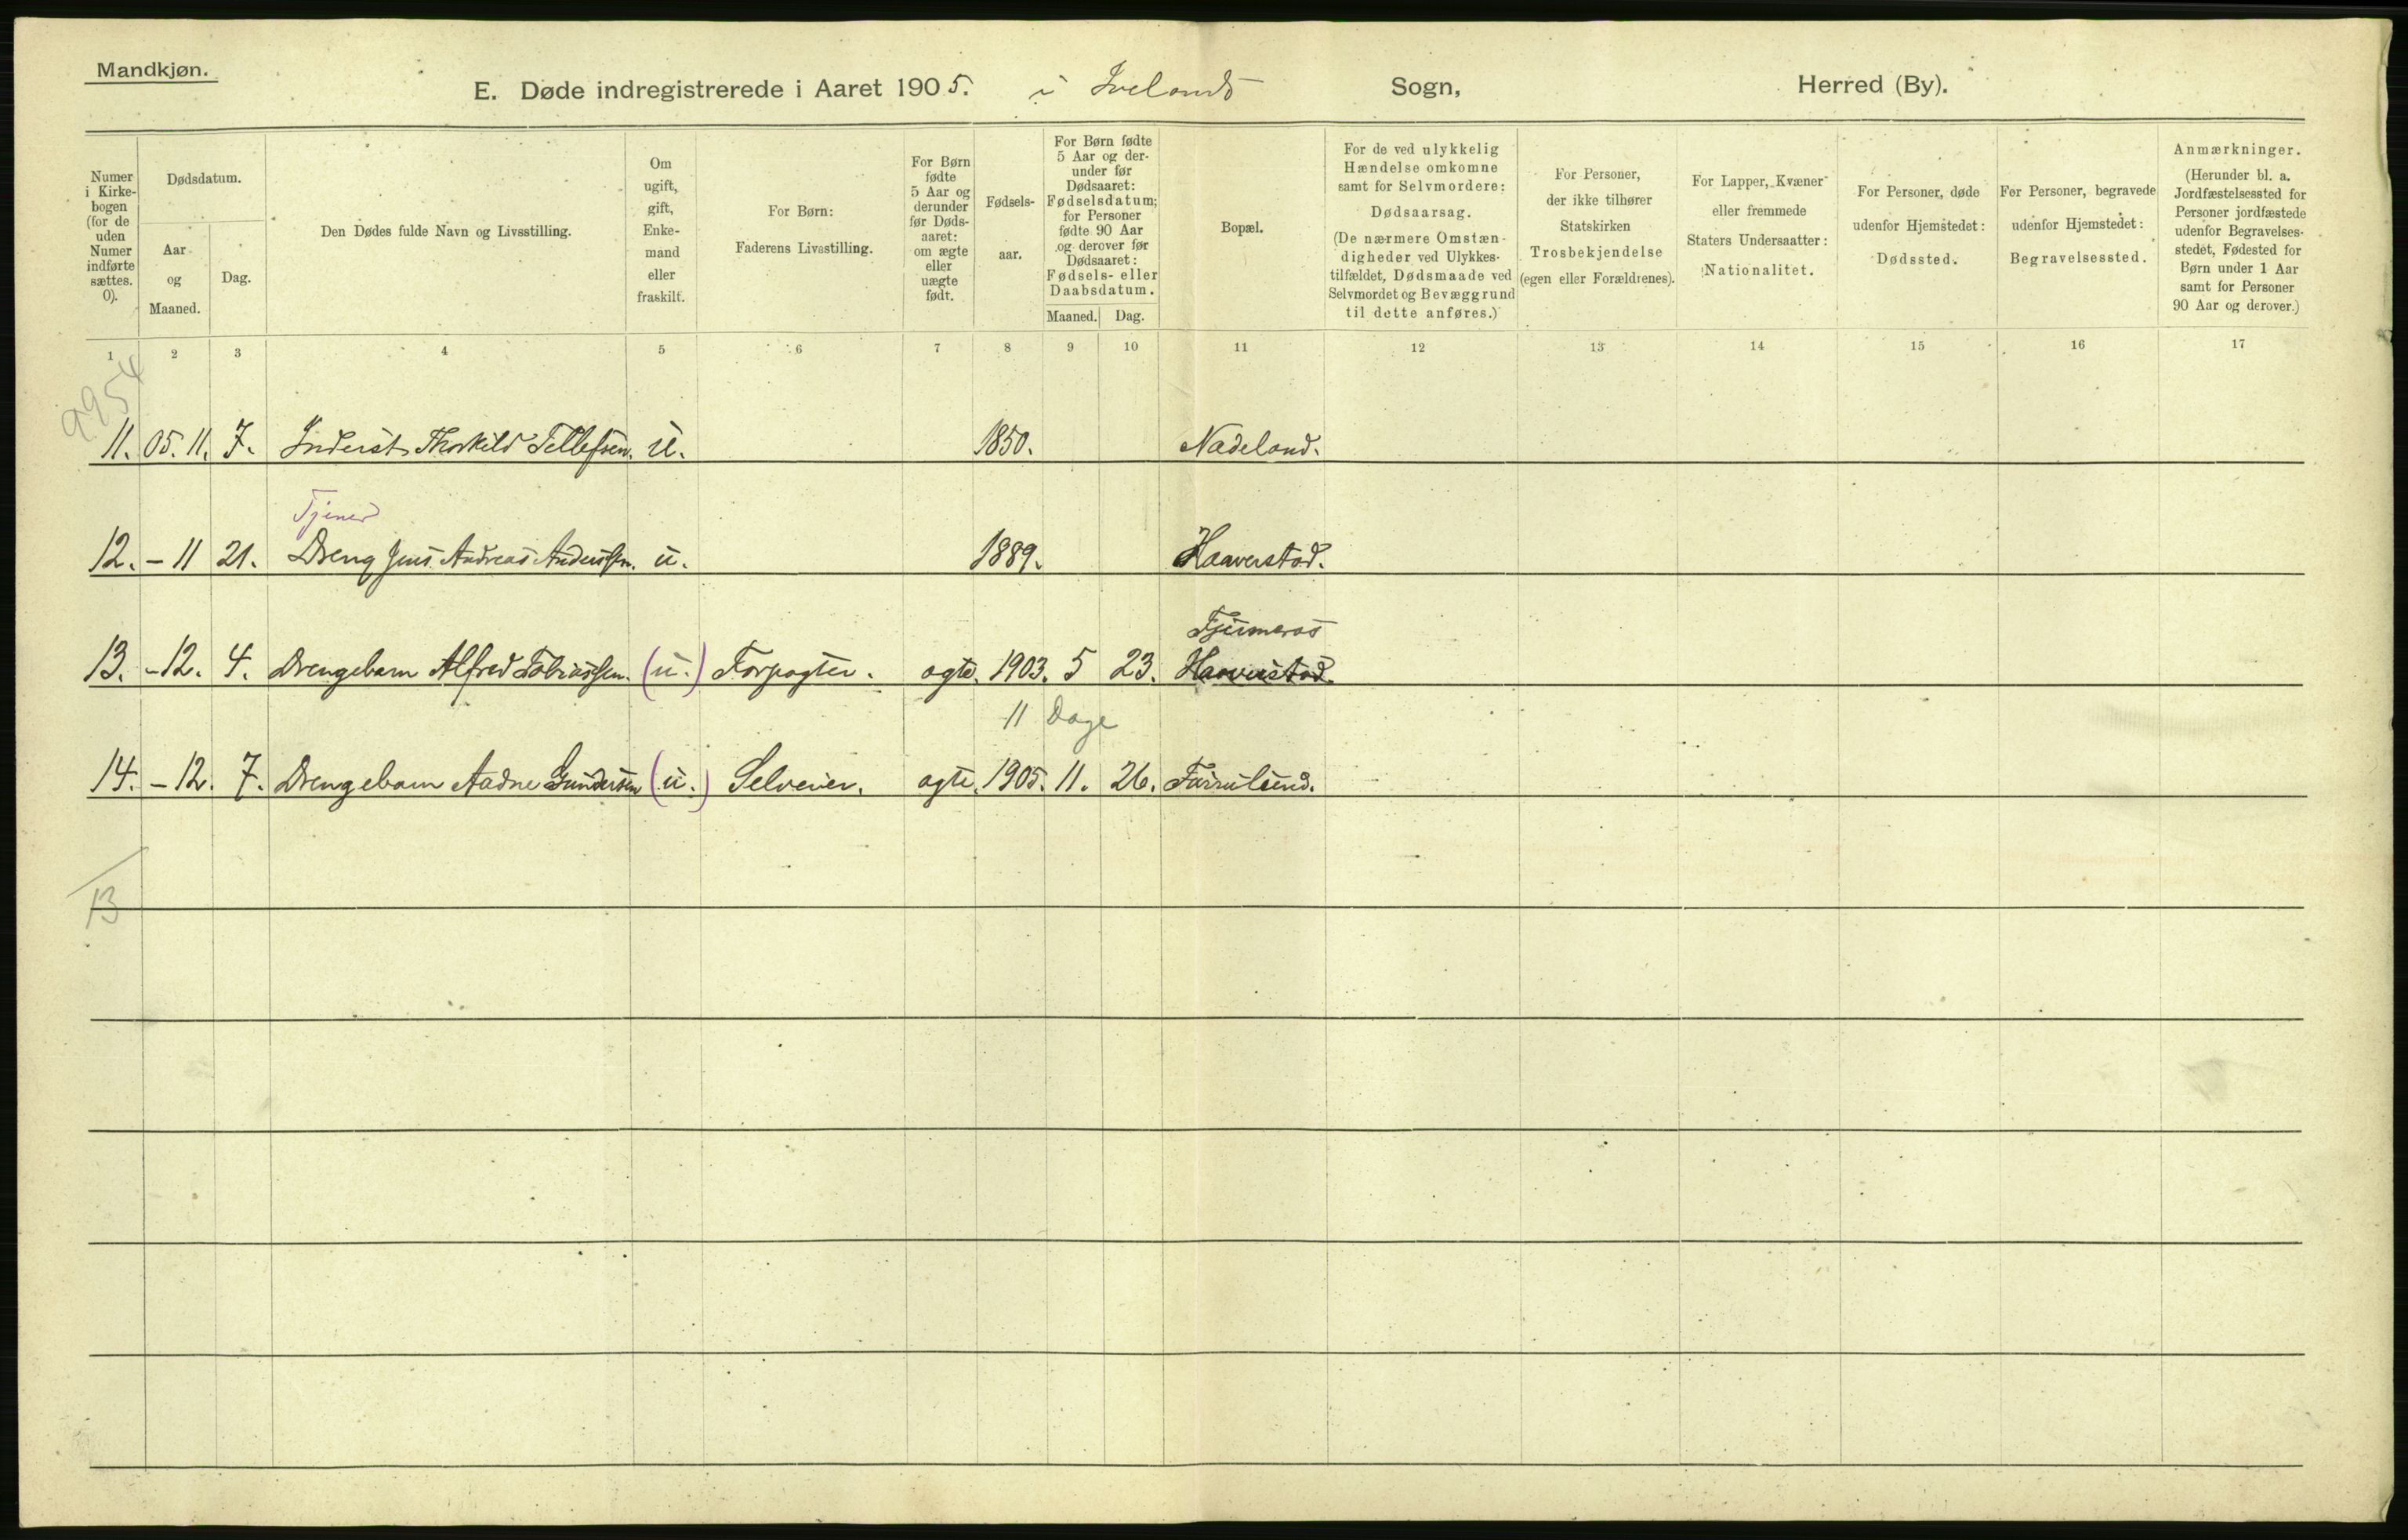 Mandkjøn.
E. Døde indregistrerede i Aaret 1905. i Ivelands Sogn, Herred (By).
Numer i Kirke-bogen (for de uden Numer indførte sættes. 0).
Dødsdatum.
Aar og Maaned.
Dag.
Den Dødes fulde Navn og Livsstilling.
Om ugift, gift, Enke-mand eller fraskilt.
For Børn: Faderens Livsstilling.
For Børn fødte 5 Aar og derunder før Døds-aaret: om ægte eller uægte født.
Fødsels-aar.
For Børn fødte 5 Aar og der-under før Dødsaaret: Fødselsdatum; for Personer fødte 90 Aar og derover før Dødsaaret: Fødsels- eller Daabsdatum.
Maaned. Dag.
Bopæl.
For de ved ulykkelig Hændelse omkomne samt for Selvmordere: Dødsaarsag. (De nærmere Omstæn-digheder ved Ulykkes-tilfældet, Dødsmaade ved Selvmordet og Bevæggrund til dette anføres.)
For Personer, der ikke tilhører Statskirken Trosbekjendelse (egen eller Forældrenes).
For Lapper, Kvæner eller fremmede Staters Undersaatter: Nationalitet.
For Personer, døde udenfor Hjemstedet: Dødssted.
For Personer, begravede udenfor Hjemstedet: Begravelsessted.
Anmærkninger. (Herunder bl. a. Jordfæstelsessted for Personer jordfæstede udenfor Begravelses-stedet, Fødested for Børn under 1 Aar samt for Personer 90 Aar og derover.)
1 2 3 4 5 6 7 8 9 10 11 12 13 14 15 16 17
9954
11. 05. 11. 7. Inderst Thorkild Tellefsen. u. 1850. Nadeland.
Tjener
12. - 11 21. Dreng Jens Andreas Anderssen. u. 1889. Haaverstad.
Fjermeros
13. - 12. 4. Drengebarn Alfred Tobiassen. (u.) Forpagter. ægte. 1903. 5 23. Haaverstad.
11 Dage
14. - 12. 7. Drengebarn Aadne Gundersen (u.) Selveier. ægte. 1905. 11. 26. Furulund.
13